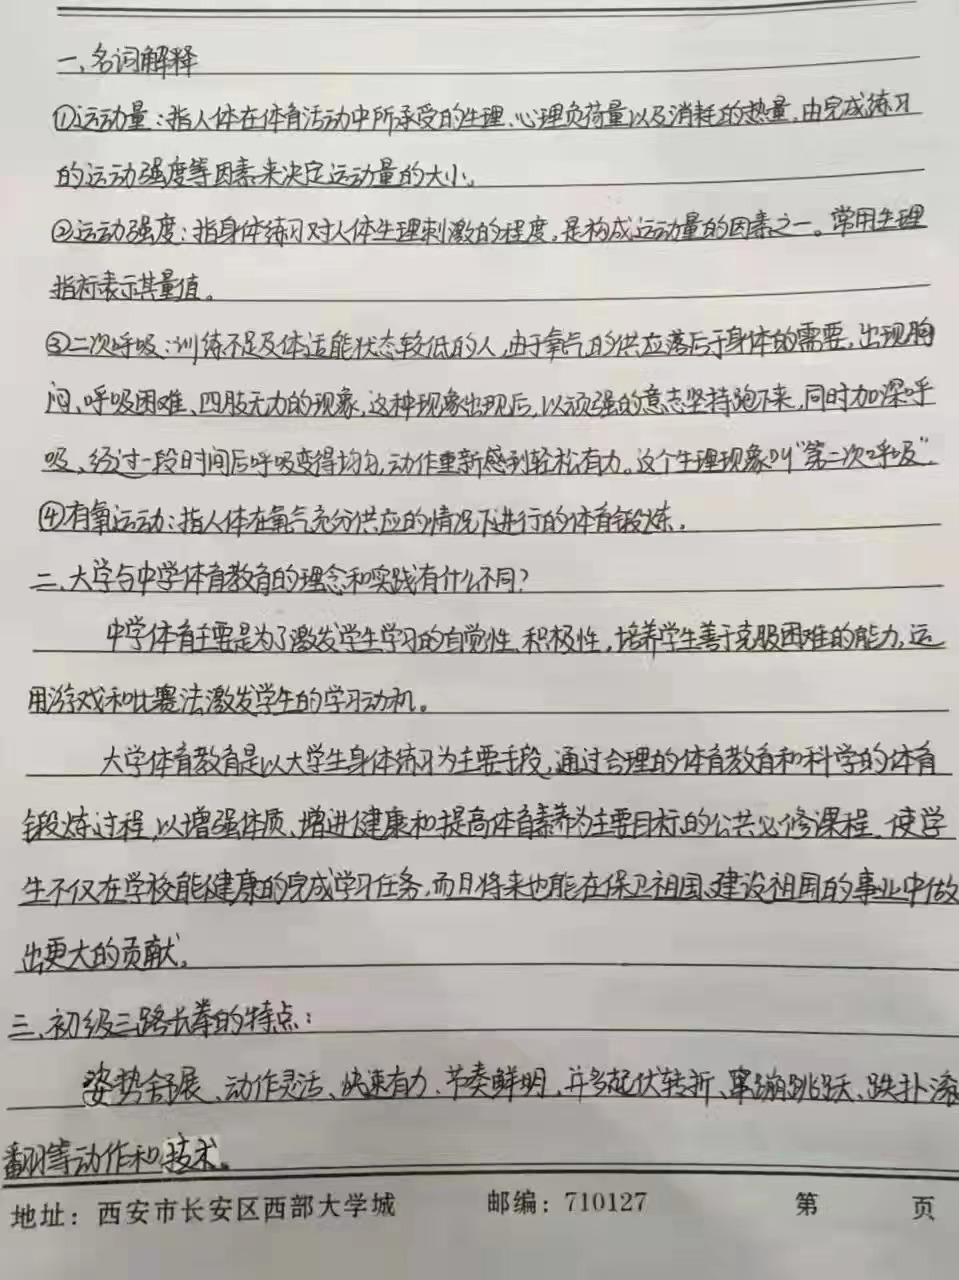 一、名词解释
①运动量：指人体在体育活动中所承受的生理、心理负荷量以及消耗的热量，由完成练习
的运动强度等因素来决定运动量的大小。
②运动强度：指身体练习对人体生理刺激的程度，是构成运动量的因素之一。常用生理
指标表示其量值。
③二次呼吸：训练不足及体适能状态较低的人，由于氧气的供应落后于身体的需要，出现胸
闷、呼吸困难、四肢无力的现象，这种现象出现后，以顽强的意志坚持跑下来，同时加深呼
吸，经过一段时间后呼吸变得均匀，动作重新感到轻松有力。这个生理现象叫“第二次呼吸”.
④有氧运动：指人体在氧气充分供应的情况下进行的体育锻炼.
二、大学与中学体育教育的理念和实践有什么不同？
中学体育主要是为了激发学生学习的自觉性、积极性，培养学生善于克服困难的能力，运
用游戏和比赛法激发学生的学习动机。
大学体育教育是以大学生身体练习为主要手段，通过合理的体育教育和科学的体育
锻炼过程，以增强体质、增进健康和提高体育素养为主要目标的公共必修课程，使学
生不仅在学校能健康的完成学习任务，而且将来也能在保卫祖国、建设祖国的事业中做
出更大的贡献。
三、初级三路长拳的特点：
姿势舒展、动作灵活、快速有力、节奏鲜明，并多起伏转折、窜蹦跳跃、跌扑滚
翻等动作和技术。
地址：西安市长安区西部大学城 邮编：710127 第 页